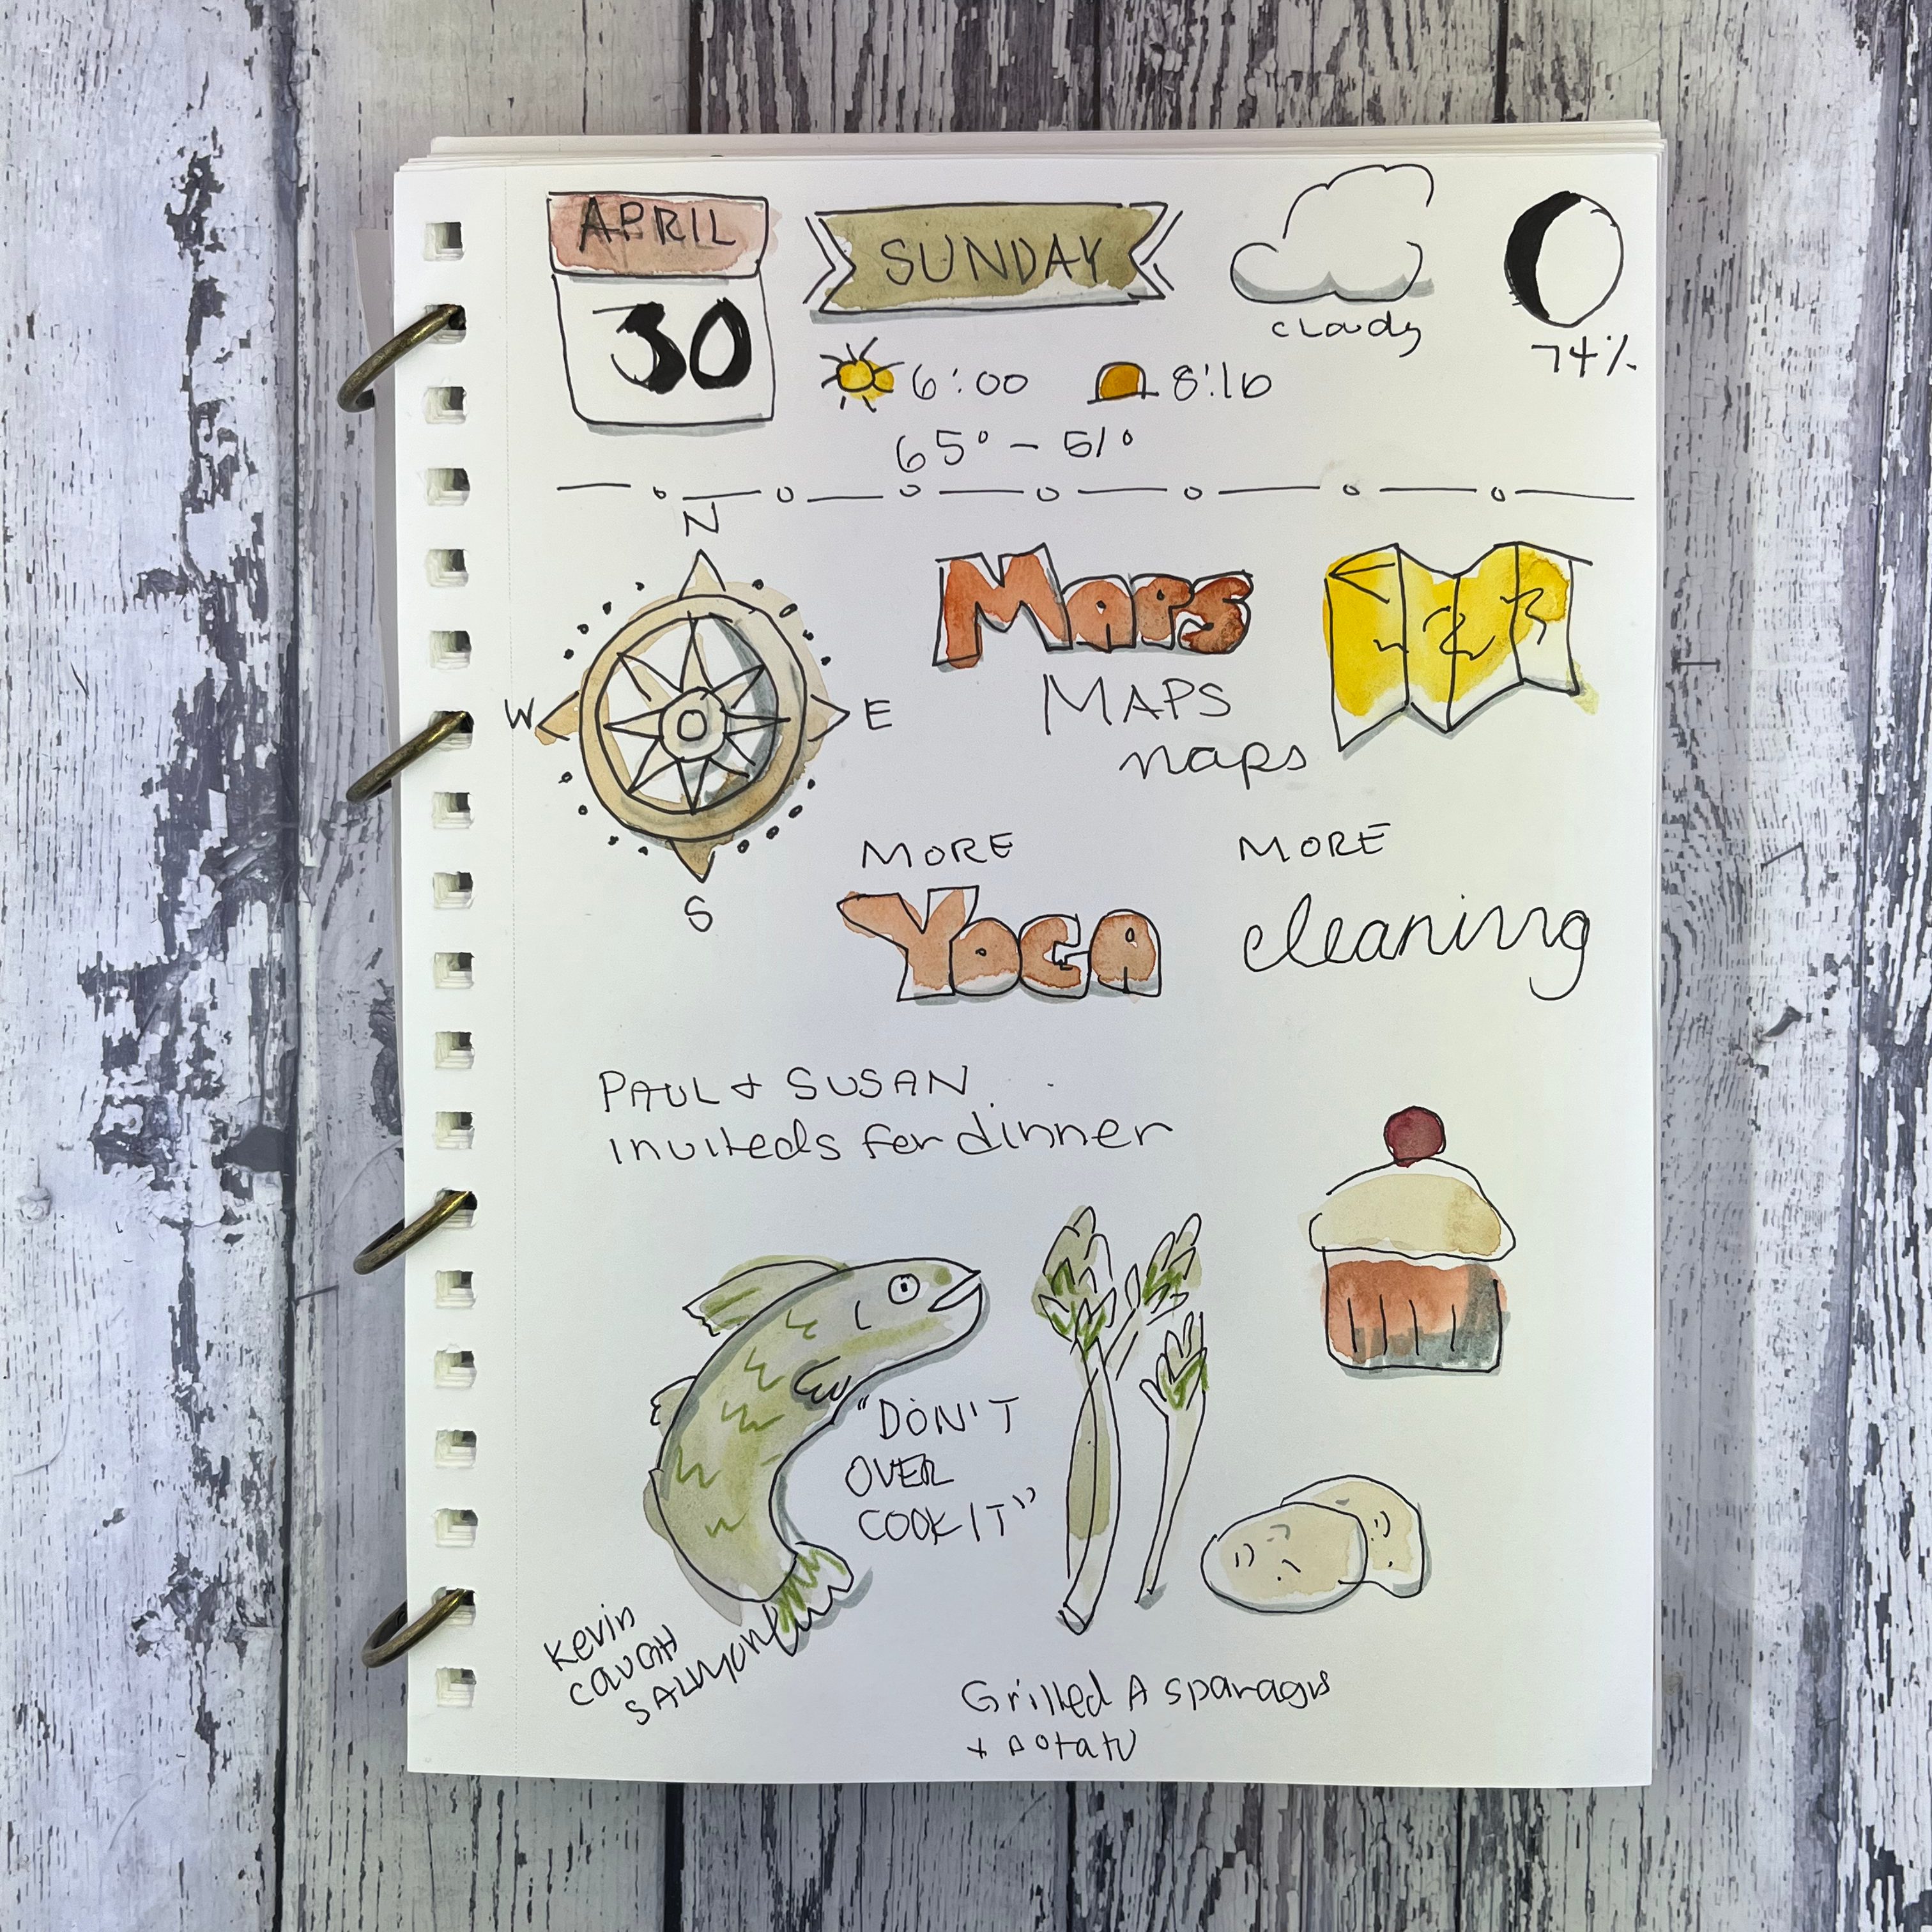 APRIL
30
SUNDAY
cloudy
74%
6:00
8:16
65° - 51°
N
W
E
S
MAPS
MAPS
maps
MORE
YOGA
MORE
cleaning
PAUL & SUSAN
inviteds for dinner
"DON'T
OVER
COOK IT"
Kevin
caught
SALMON
Grilled Asparagus
+ potato